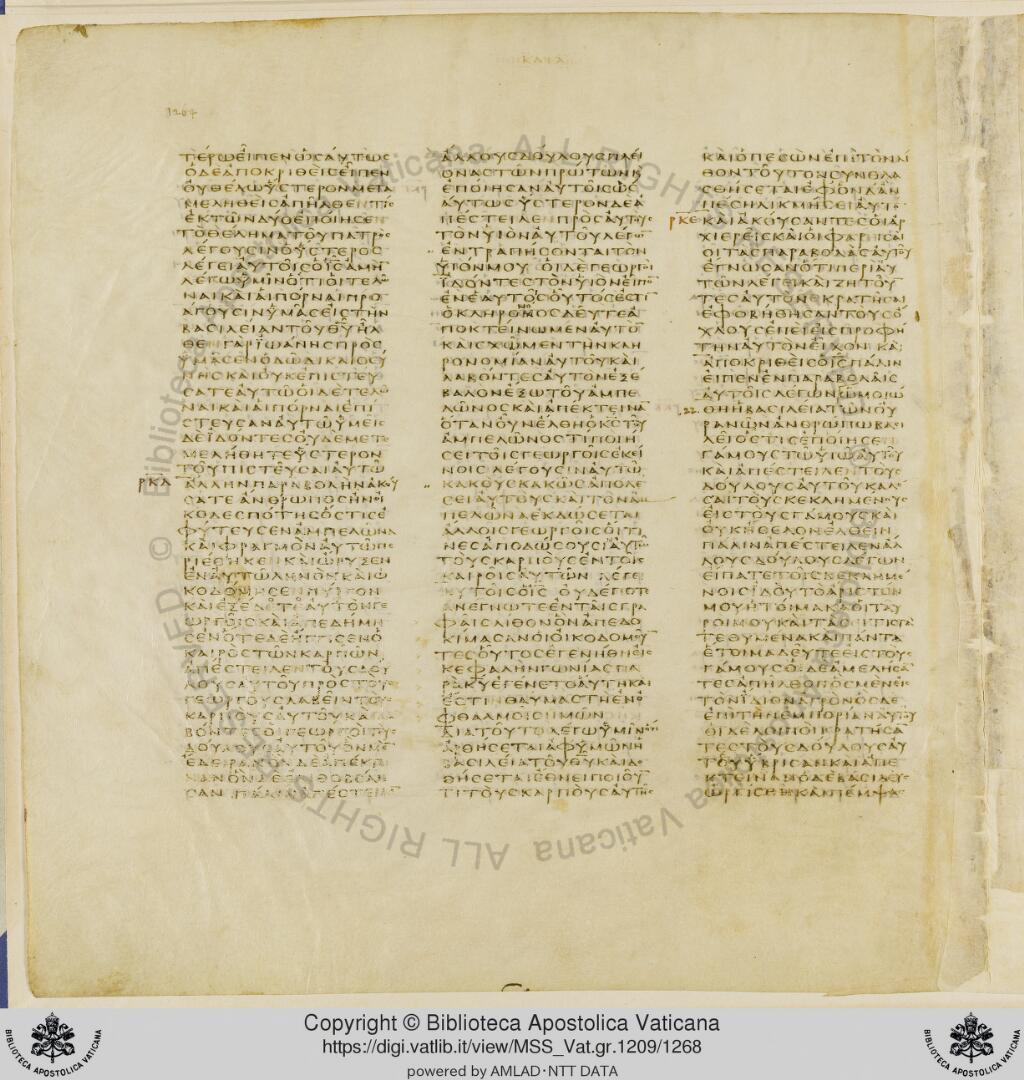 ΚΑΤΑ
1264
ΤΕΡΩΕΙΠΕΝΩΣΑΥΤΩΣ
ΟΔΕΑΠΟΚΡΙΘΕΙΣΕΙΠΕΝ
ΟΥΘΕΛΩΥΣΤΕΡΟΝΜΕΤΑ
ΜΕΛΗΘΕΙΣΑΠΗΛΘΕΝΤΙΣ
ΕΚΤΩΝΔΥΟΕΠΟΙΗΣΕ
ΤΟΘΕΛΗΜΑΤΟΥΠΑΤΡΟΣ
ΛΕΓΟΥΣΙΝΟΥΣΤΕΡΟΣ
ΛΕΓΕΙΑΥΤΟΙΣΟΙΣΑΜΗ
ΛΕΓΩΥΜΙΝΟΤΙΟΙΤΕΛΩ
ΝΑΙΚΑΙΑΙΠΟΡΝΑΙΠΡΟ
ΑΓΟΥΣΙΝΥΜΑΣΕΙΣΤΗΝ
ΒΑΣΙΛΕΙΑΝΤΟΥΘΥΗΛ
ΘΕΓΑΡΙΩΑΝΗΣΠΡΟΣ
ΥΜΑΣΕΝΟΔΩΔΙΚΑΙΟΣΥ
ΝΗΣΚΑΙΟΥΚΕΠΙΣΤΕΥ
ΣΑΤΕΑΥΤΩΟΙΔΕΤΕΛΩ
ΝΑΙΚΑΙΑΙΠΟΡΝΑΙΕΠΙ
ΣΤΕΥΣΑΝΑΥΤΩΥΜΕΙΣ
ΔΕΙΔΟΝΤΕΣΟΥΔΕΜΕΤΕ
ΜΕΛΗΘΗΤΕΥΣΤΕΡΟΝ
ΤΟΥΠΙΣΤΕΥΣΑΙΑΥΤΩ
ΡΚΔ ΑΛΛΗΝΠΑΡΑΒΟΛΗΝΑΚΟΥ
ΣΑΤΕΑΝΘΡΩΠΟΣΗΝΟΙ
ΚΟΔΕΣΠΟΤΗΣΟΣΤΙΣΕ
ΦΥΤΕΥΣΕΝΑΜΠΕΛΩΝΑ
ΚΑΙΦΡΑΓΜΟΝΑΥΤΩΠΕ
ΡΙΕΘΗΚΕΝΚΑΙΩΡΥΞΕΝ
ΕΝΑΥΤΩΛΗΝΟΝΚΑΙΩ
ΚΟΔΟΜΗΣΕΝΠΥΡΓΟΝ
ΚΑΙΕΞΕΔΕΤΟΑΥΤΟΝΓΕ
ΩΡΓΟΙΣΚΑΙΑΠΕΔΗΜΗ
ΣΕΝΟΤΕΔΕΗΓΓΙΣΕΝΟ
ΚΑΙΡΟΣΤΩΝΚΑΡΠΩΝ
ΑΠΕΣΤΕΙΛΕΝΤΟΥΣΔΟΥ
ΛΟΥΣΑΥΤΟΥΠΡΟΣΤΟΥΣ
ΓΕΩΡΓΟΥΣΛΑΒΕΙΝΤΟΥΣ
ΚΑΡΠΟΥΣΑΥΤΟΥΚΑΙΛΑ
ΒΟΝΤΕΣΟΙΓΕΩΡΓΟΙΤΟΥΣ
ΔΟΥΛΟΥΣΑΥΤΟΥΟΝΜΕ
ΕΔΕΙΡΑΝΟΝΔΕΑΠΕΚΤΙ
ΝΑΝΟΝΔΕΕΛΙΘΟΒΟΛΗ
ΣΑΝΠΑΛΙΝΑΠΕΣΤΕΙΛΕ
ΑΛΛΟΥΣΔΟΥΛΟΥΣΠΛΕΙ
ΟΝΑΣΤΩΝΠΡΩΤΩΝΚ
ΕΠΟΙΗΣΑΝΑΥΤΟΙΣΩΣ
ΑΥΤΩΣΥΣΤΕΡΟΝΔΕΑ
ΠΕΣΤΕΙΛΕΠΡΟΣΑΥΤΟΥΣ
ΤΟΝΥΙΟΝΑΥΤΟΥΛΕΓΩ
ΕΝΤΡΑΠΗΣΟΝΤΑΙΤΟΝ
ΥΙΟΝΜΟΥΟΙΔΕΓΕΩΡΓΟΙ
ΙΔΟΝΤΕΣΤΟΝΥΙΟΝΕΙΠΟ
ΕΝΕΑΥΤΟΙΣΟΥΤΟΣΕΣΤΙ
ΟΚΛΗΡΟΝΟΜΟΣΔΕΥΤΕΑ
ΠΟΚΤΕΙΝΩΜΕΝΑΥΤΟ
ΚΑΙΣΧΩΜΕΝΤΗΝΚΛΗ
ΡΟΝΟΜΙΑΝΑΥΤΟΥΚΑΙ
ΛΑΒΟΝΤΕΣΑΥΤΟΝΕΞΕ
ΒΑΛΟΝΕΞΩΤΟΥΑΜΠΕ
ΛΩΝΟΣΚΑΙΑΠΕΚΤΕΙΝΑ
ΟΤΑΝΟΥΝΕΛΘΗΟΚΣΤΟΥ
ΑΜΠΕΛΩΝΟΣΤΙΠΟΙΗ
ΣΕΙΤΟΙΣΓΕΩΡΓΟΙΣΕΚΕΙ
ΝΟΙΣΛΕΓΟΥΣΙΝΑΥΤΩ
ΚΑΚΟΥΣΚΑΚΩΣΑΠΟΛΕ
ΣΕΙΑΥΤΟΥΣΚΑΙΤΟΝΑΜ
ΠΕΛΩΝΑΕΚΔΩΣΕΤΑΙ
ΑΛΛΟΙΣΓΕΩΡΓΟΙΣΟΙΤΙ
ΝΕΣΑΠΟΔΩΣΟΥΣΙΑΥΤΩ
ΤΟΥΣΚΑΡΠΟΥΣΕΝΤΟΙΣ
ΚΑΙΡΟΙΣΑΥΤΩΝΛΕΓΕΙ
ΑΥΤΟΙΣΟΙΣΟΥΔΕΠΟΤΕ
ΑΝΕΓΝΩΤΕΕΝΤΑΙΣΓΡΑ
ΦΑΙΣΛΙΘΟΝΟΝΑΠΕΔΟ
ΚΙΜΑΣΑΝΟΙΟΙΚΟΔΟΜΟΥ
ΤΕΣΟΥΤΟΣΕΓΕΝΗΘΗΕΙΣ
ΚΕΦΑΛΗΝΓΩΝΙΑΣΠΑ
ΡΑΚΥΕΓΕΝΕΤΟΑΥΤΗΚΑΙ
ΕΣΤΙΝΘΑΥΜΑΣΤΗΕΝΟ
ΦΘΑΛΜΟΙΣΗΜΩΝ
ΔΙΑΤΟΥΤΟΛΕΓΩΥΜΙΝ
ΑΡΘΗΣΕΤΑΙΑΦΥΜΩΝΗ
ΒΑΣΙΛΕΙΑΤΟΥΘΥΚΑΙΔΟ
ΘΗΣΕΤΑΙΕΘΝΕΙΠΟΙΟΥ
ΤΙΤΟΥΣΚΑΡΠΟΥΣΑΥΤΗΣ
ΚΑΙΟΠΕΣΩΝΕΠΙΤΟΝΛΙ
ΘΟΝΤΟΥΤΟΝΣΥΝΘΛΑ
ΣΘΗΣΕΤΑΙΕΦΟΝΔΑΝ
ΠΕΣΗΛΙΚΜΗΣΕΙΑΥΤΟ
ΡΚΕ ΚΑΙΑΚΟΥΣΑΝΤΕΣΟΙΑΡ
ΧΙΕΡΕΙΣΚΑΙΟΙΦΑΡΙΣΑΙ
ΟΙΤΑΣΠΑΡΑΒΟΛΑΣΑΥΤΟΥ
ΕΓΝΩΣΑΝΟΤΙΠΕΡΙΑΥ
ΤΩΝΛΕΓΕΙΚΑΙΖΗΤΟΥ
ΤΕΣΑΥΤΟΝΚΡΑΤΗΣΑΙ
ΕΦΟΒΗΘΗΣΑΝΤΟΥΣΟ
ΧΛΟΥΣΕΠΕΙΕΙΣΠΡΟΦΗ
ΤΗΝΑΥΤΟΝΕΙΧΟΝΚΑΙ
ΑΠΟΚΡΙΘΕΙΣΟΙΣΠΑΛΙΝ
ΕΙΠΕΝΕΝΠΑΡΑΒΟΛΑΙΣ
ΑΥΤΟΙΣΛΕΓΩΝΩΜΟΙΩ
22. ΘΗΗΒΑΣΙΛΕΙΑΤΩΝΟΥ
ΡΑΝΩΝΑΝΘΡΩΠΩΒΑΣΙ
ΛΕΙΟΣΤΙΣΕΠΟΙΗΣΕ
ΓΑΜΟΥΣΤΩΥΙΩΑΥΤΟΥ
ΚΑΙΑΠΕΣΤΕΙΛΕΝΤΟΥΣ
ΔΟΥΛΟΥΣΑΥΤΟΥΚΑΛΕ
ΣΑΙΤΟΥΣΚΕΚΛΗΜΕΝΟΥΣ
ΕΙΣΤΟΥΣΓΑΜΟΥΣΚΑΙ
ΟΥΚΗΘΕΛΟΝΕΛΘΕΙΝ
ΠΑΛΙΝΑΠΕΣΤΕΙΛΕΝΑΛ
ΛΟΥΣΔΟΥΛΟΥΣΛΕΓΩΝ
ΕΙΠΑΤΕΤΟΙΣΚΕΚΛΗΜΕ
ΝΟΙΣΙΔΟΥΤΟΑΡΙΣΤΟΝ
ΜΟΥΗΤΟΙΜΑΚΑΟΙΤΑΥ
ΡΟΙΜΟΥΚΑΙΤΑΣΙΤΙΣΤΑ
ΤΕΘΥΜΕΝΑΚΑΙΠΑΝΤΑ
ΕΤΟΙΜΑΔΕΥΤΕΕΙΣΤΟΥΣ
ΓΑΜΟΥΣΟΙΔΕΑΜΕΛΗΣΑ
ΤΕΣΑΠΗΛΘΟΝΟΣΜΕΝΕΙΣ
ΤΟΝΙΔΙΟΝΑΓΡΟΝΟΣΔΕ
ΕΠΙΤΗΝΕΜΠΟΡΙΑΝΑΥΤΟΥ
ΟΙΔΕΛΟΙΠΟΙΚΡΑΤΗΣΑ
ΤΕΣΤΟΥΣΔΟΥΛΟΥΣΑΥ
ΤΟΥΥΒΡΙΣΑΝΚΑΙΑΠΕ
ΚΤΕΙΝΑΝΟΔΕΒΑΣΙΛΕΥΣ
ΩΡΓΙΣΘΗΚΑΙΠΕΜΨΑΣ
Copyright © Biblioteca Apostolica Vaticana
https://digi.vatlib.it/view/MSS_Vat.gr.1209/1268
powered by AMLAD·NTT DATA